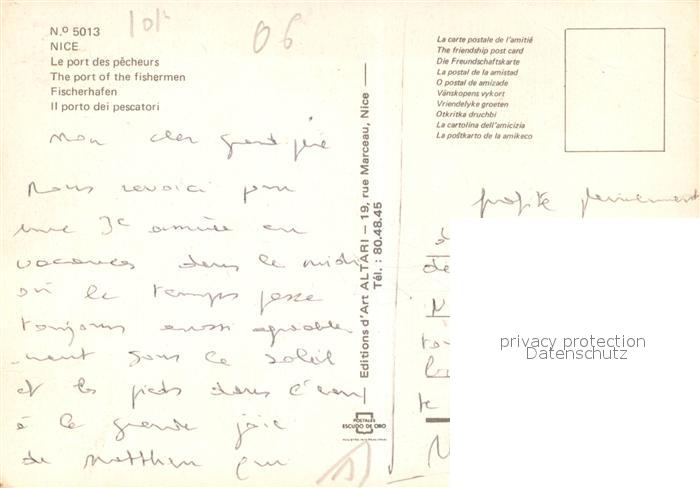 N.º 5013
101
06
NICE
Le port des pêcheurs
The port of the fishermen
Fischerhafen
Il porto dei pescatori
Mon cher grand père
Nous revoici pour
une 3e année en
vacances dans le midi
où le temps passe
toujours aussi agréable
ment sous le soleil
et les pieds dans l'eau
à la grande joie
de Matthieu qui
Editions d'Art ALTARI — 19, rue Marceau, Nice
Tél. : 80.48.45
POSTALES
ESCUDO DE ORO
La carte postale de l'amitié
The friendship post card
Die Freundschaftskarte
La postal de la amistad
O postal de amizade
Vänskopens vykort
Vriendelyke groeten
Otkritka druchbi
La cartolina dell'amicizia
La poŝtkarto de la amikeco
profite pleinement
de
te
privacy protection
Datenschutz